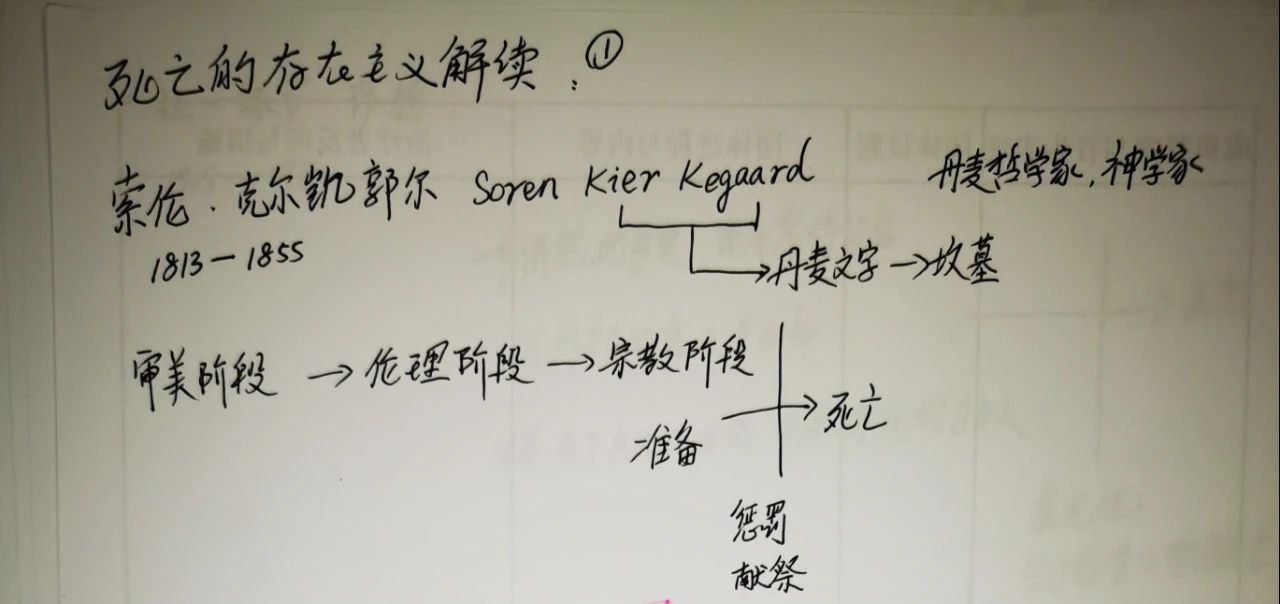 死亡的存在主义解读：①
索伦·克尔凯郭尔 Soren Kier Kegaard 丹麦哲学家，神学家
1813－1855 丹麦文字→坟墓
审美阶段→伦理阶段→宗教阶段
准备→死亡
惩罚
献祭